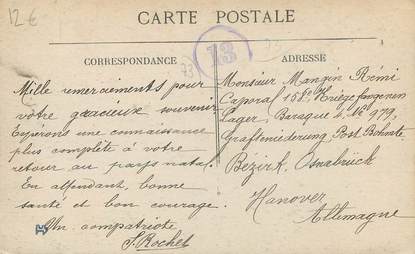 12 €
CARTE POSTALE
CORRESPONDANCE
ADRESSE
13
73
Mille remerciements pour
votre gracieux souvenir
Espérons une connaissance
plus complète à votre
retour au pays natal.
En attendant, bonne
santé et bon courage.
Un compatriote
J. Rochet
Monsieur Mangin Rémi
Caporal 151e Kriegsfangenen
Lager, Baraque 4, No 979,
Grafteniederung, Post Bohmte
Bezirk, Osnabrück
Hanover
Allemagne